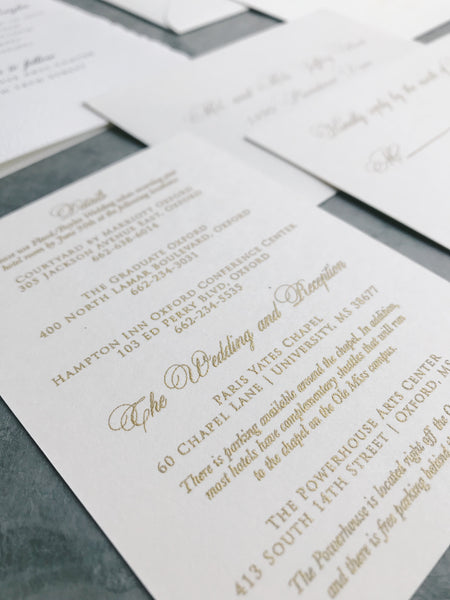 & follow
Details
Wedding when reserving your
hotel room by June 20th at the following locations.
Courtyard by Marriott Oxford
305 Jackson Avenue East, Oxford
662-638-6014
The Graduate Oxford
400 North Lamar Boulevard, Oxford
662-234-3031
Hampton Inn Oxford Conference Center
103 Ed Perry Blvd, Oxford
662-234-5535
The Wedding and Reception
Paris Yates Chapel
60 Chapel Lane | University, MS 38677
There is parking available around the chapel. In addition,
most hotels have complimentary shuttles that will run
to the chapel on the Ole Miss campus.
The Powerhouse Arts Center
413 South 14th Street | Oxford, MS
The Powerhouse is located right off the
and there is free parking behind
Mr. and Mrs. Jeffrey
Kindly reply by the
M